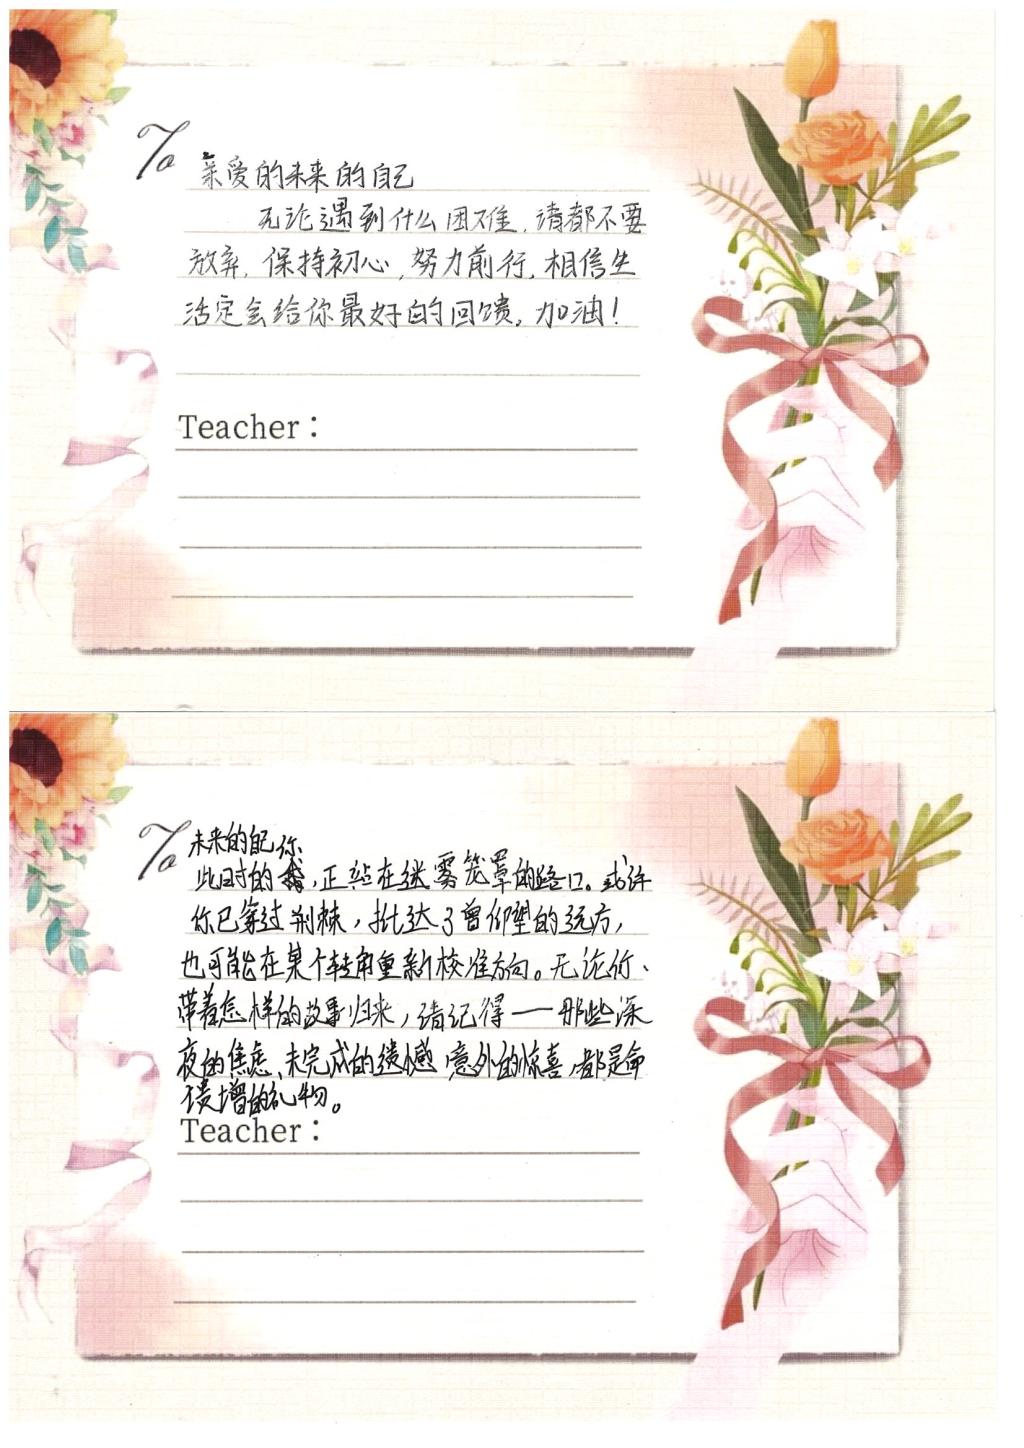 To 亲爱的未来的自己
无论遇到什么困难,请都不要
放弃,保持初心,努力前行,相信生
活定会给你最好的回馈,加油!
Teacher:
To 未来的自己 你
此时的我,正站在迷雾笼罩的路口。或许
你已穿过荆棘,抵达了曾仰望的远方,
也可能在某个转角重新校准方向。无论你、
带着怎样的故事归来,请记得——那些深
夜的焦虑、未完成的遗憾,意外的惊喜,都是命
馈增的礼物。
Teacher: